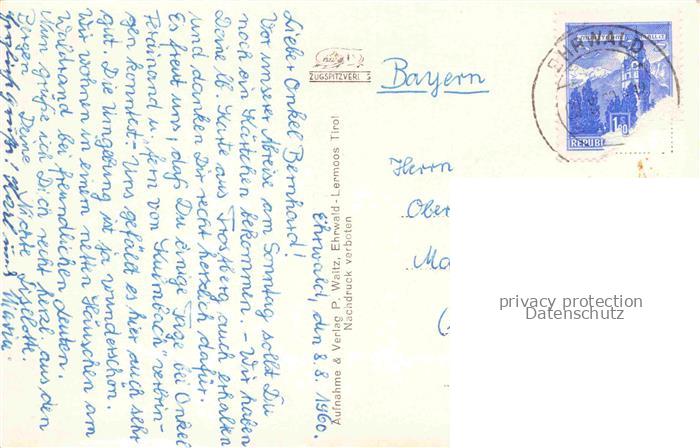 Ehrwald, den 8.8.1960.
Lieber Onkel Bernhard!
Vor unserer Abreise am Sonntag sollst Du
noch ein Kärtchen bekommen. - Wir haben
Deine lb. Karte aus Trostberg auch erhalten
und danken Dir recht herzlich dafür.
Es freut uns, daß Du einige Tage bei Onkel
Ferdinand u. fern von Kulmbach verbrin-
gen konntest. Uns gefällt es hier auch sehr
gut. Die Umgebung ist ja wunderschön.
Wir wohnen in einem netten Häuschen am
Waldrand bei freundlichen Leuten.
Nun grüße ich Dich recht herzl. aus den
Bergen Deine Nichte Liselotte.
Maria.
ZUGSPITZVERLAG
Aufnahme & Verlag P. Waitz, Ehrwald - Lermoos Tirol
Nachdruck verboten
Bayern
Herrn
Ober
EHRWALD
1.80
REPUBL
privacy protection
Datenschutz